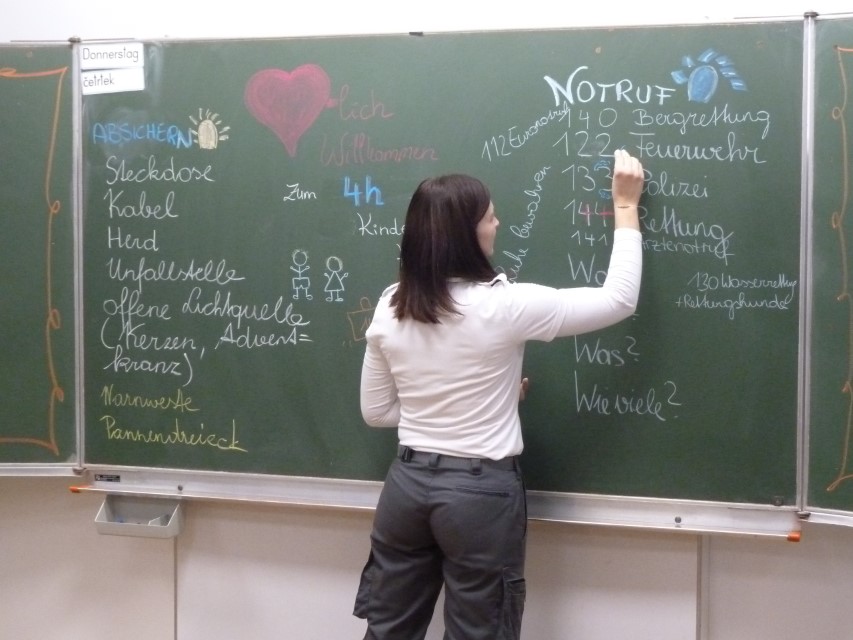 Donnerstag
četrtek
ABSICHERN
Steckdose
Kabel
Herd
Unfallstelle
offene Lichtquelle
(Kerzen, Advent=
kranz)
Warnweste
Pannendreieck
lich
Willkommen
Zum 4h
Kinde
NOTRUF
112 Euronotruf
140 Bergrettung
122 Feuerwehr
133 Polizei
144 Rettung
141 Ärztenotruf
bewahren
130 Wasserrettung
+Rettungshunde
Wo
Was?
Wieviele?